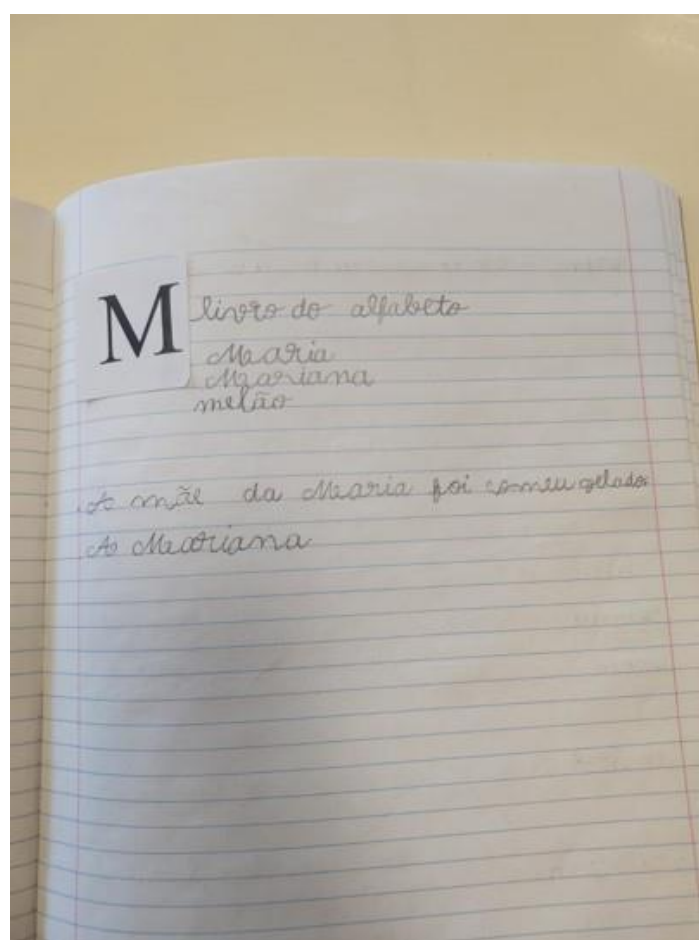 M
livro do alfabeto
Maria
Mariana
melão
A mãe da Maria foi comeu gelado.
A Mariana